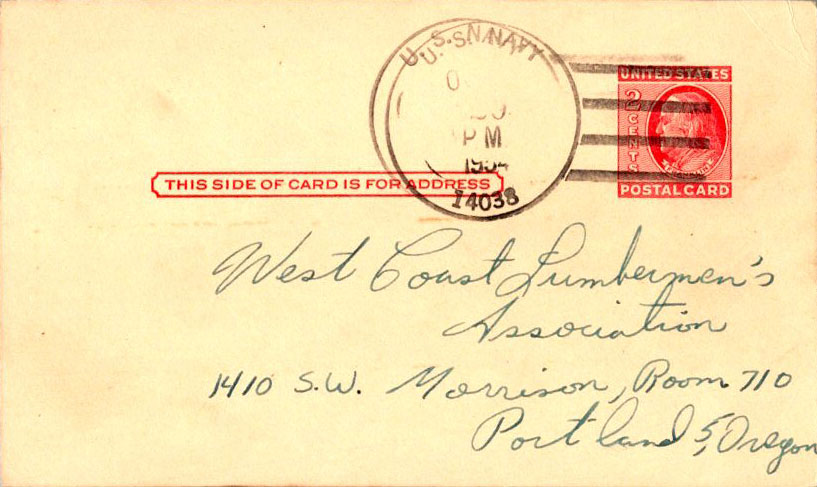 U.S. NAVY
PM
1954
14038
UNITED STATES
2
CENTS
POSTAL CARD
THIS SIDE OF CARD IS FOR ADDRESS
West Coast Lumbermen's
Association
1410 S.W. Morrison, Room 710
Portland 5, Oregon